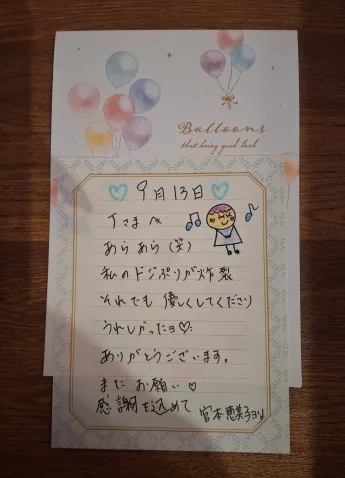 Balloons
that bring good luck
9月13日
Tさまへ
あらあら(笑)
私のドジぶりが炸裂
それでも 優しくしてくださり
うれしかったョ♡
ありがとうございます。
またお願い♡
感謝を込めて 宮本恵美子ョリ